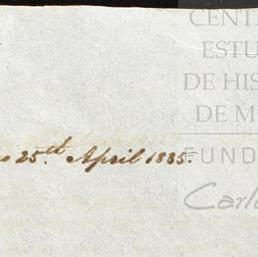 CENT
ESTU
DE HIS
DE M
25th April 1885.
FUND
Carl